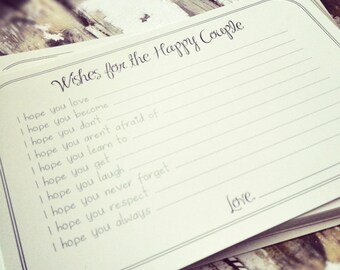 Wishes for the Happy Couple
I hope you love
I hope you become
I hope you don't
I hope you aren't afraid of
I hope you learn to
I hope you get
I hope you laugh
I hope you never forget
I hope you respect
I hope you always
Love,